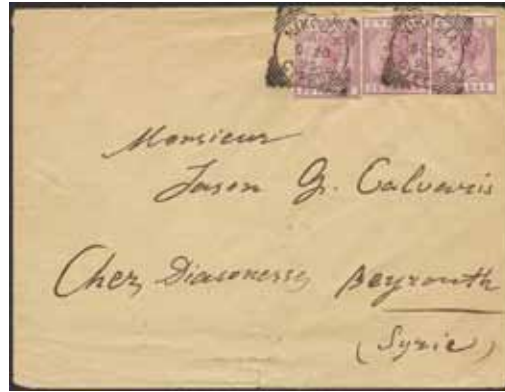 Monsieur
Jason G. Calveris
Chez Diaconesses Beyrouth
(Syrie)